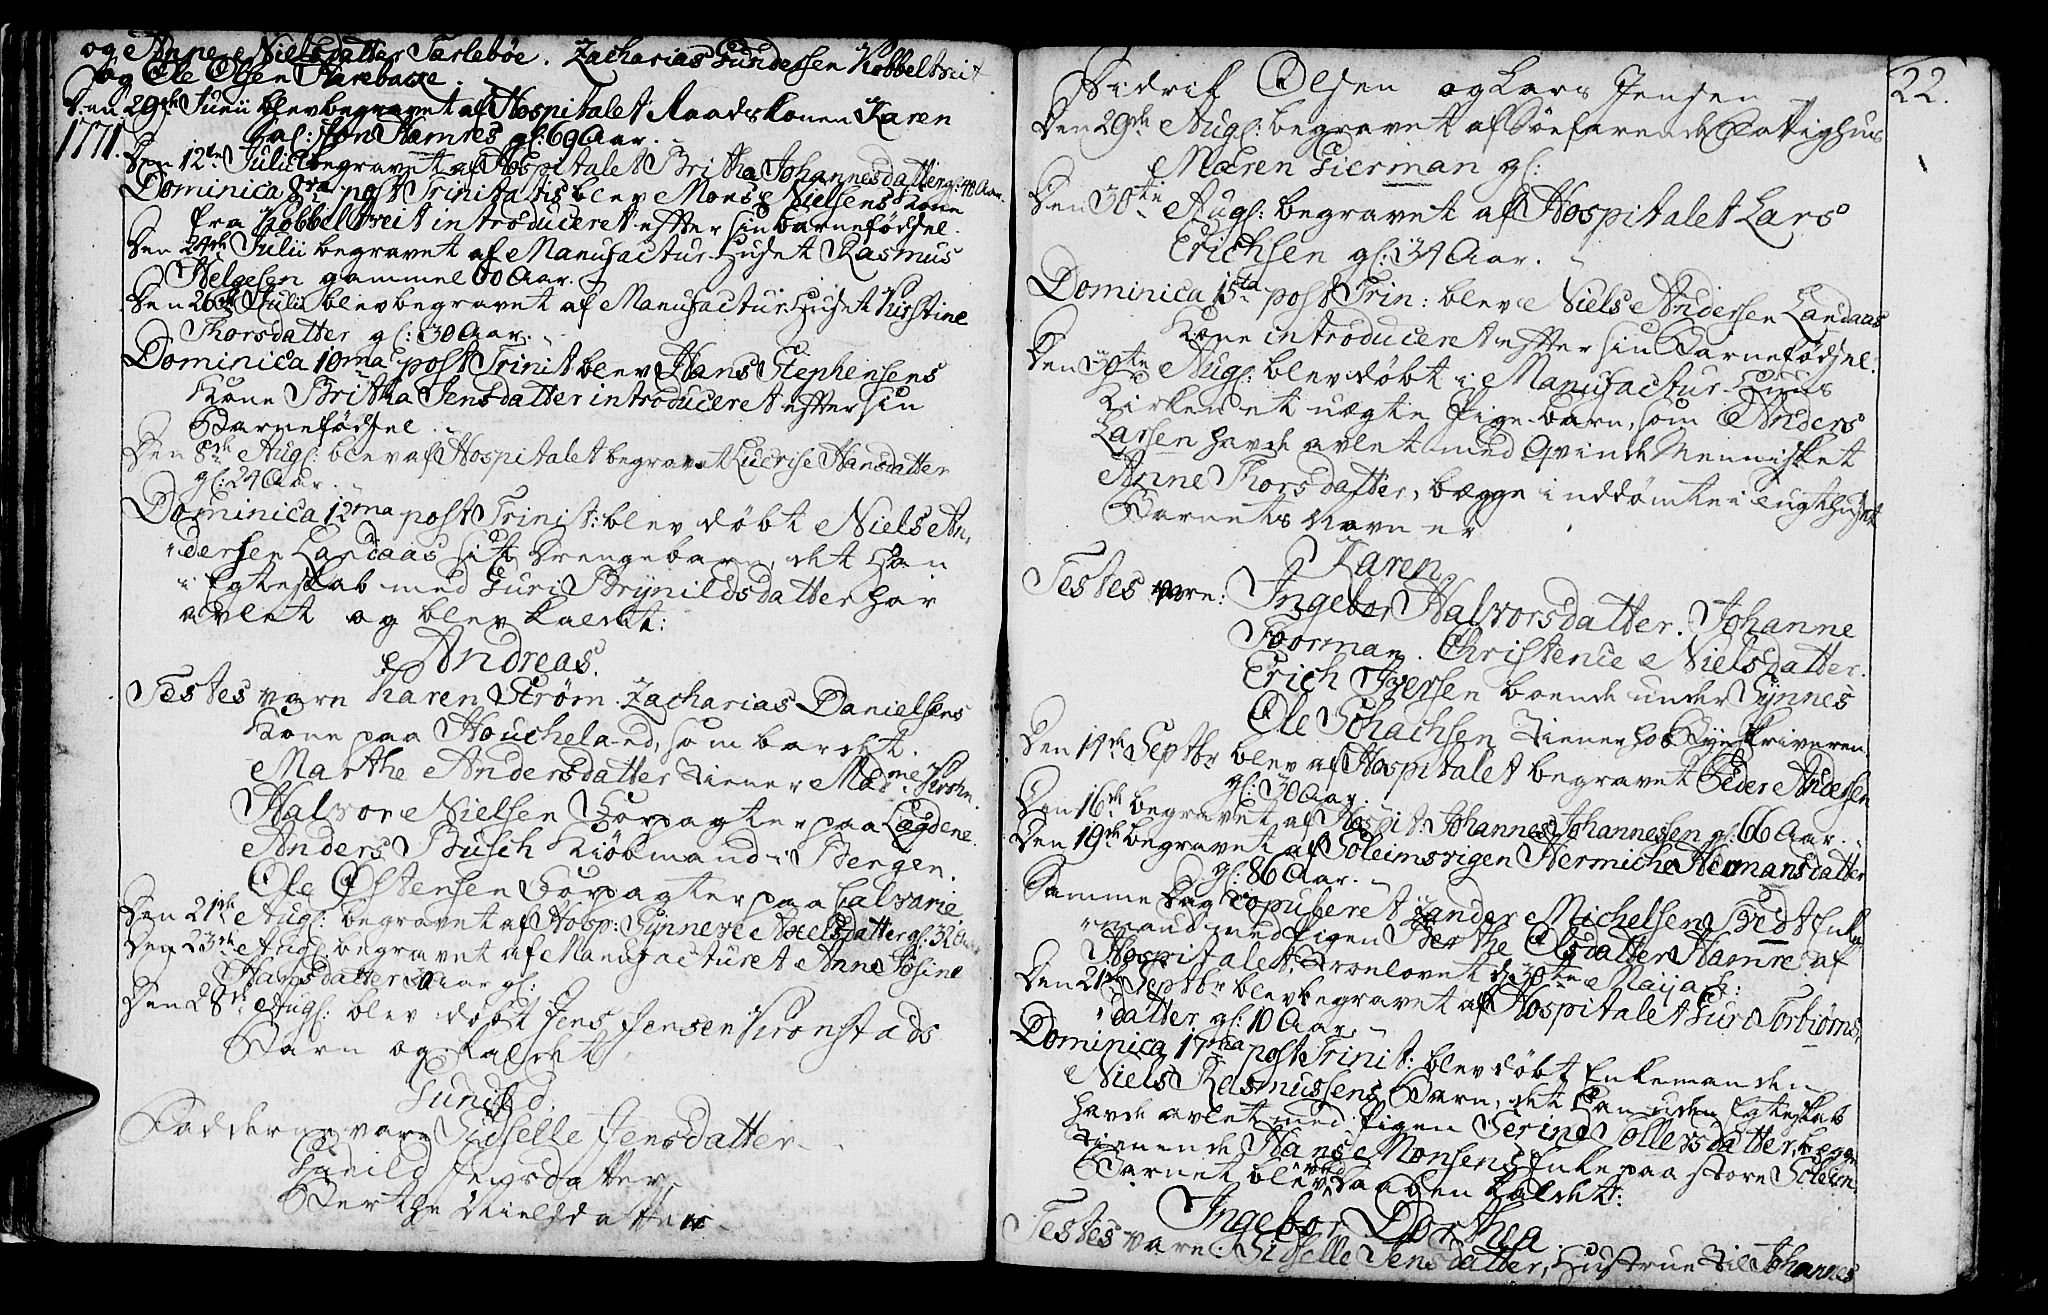 og Anne Nielsdatter Tarlebøe. Zacharias Gundersen Kobbeltveit
og Ole Olsen Harebacke.
Den 29de Junii blev begravet af Hospitalet Raadskonen Karen
Sal: Jon Hamres gl: 69 Aar.
1771.
Den 12te Julii begravet af Hospitalet Britha Johannesdatter gl: 40 Aar.
Dominica 8va post Trinitatis blev Mons Nielsens Kone
fra Kobbeltveit introduceret efter sin barnefødsel.
Den 24de Julii begravet af Manufactur Huset Rasmus
Helgesen gammel 60 Aar.
Den 26de Julii blev begravet af Manufactur Huset Kirstine
Thorsdatter gl: 30 Aar.
Dominica 10ma post Trinit blev Hans Stephensens
Kone Britha Jensdatter introduceret efter sin
Barnefødsel.
Den 8de Aug: blev af Hospitalet begravet Lucrise Hansdatter
gl: 24 Aar.
Dominica 12ma post Trinit: blev døbt Niels An-
dersen Landaas sit Drengebarn, det Han
i Egteskab med Guri Brynildsdatter har
avlet og blev kaldet:
Andreas.
Testes varn Karen Strøm. Zacharias Danielsens
Kone paa Houcheland, som bar det.
Marthe Andersdatter tiener Madme Krohn.
Halvor Nielsen Forpagter paa Lægdene.
Anders Busch Kiøbmand i Bergen.
Ole Østensen Forpagter paa Calvarie.
Den 21de Aug: begravet af Hosp: Synneve Axelsdatter gl: 32 Aar
Den 23de Aug: begravet af Manufacturet Anne Josine
Hansdatter Aar gl:
Den 28de Aug: blev døbt Jens Jensen Kronstads
Barn og kaldet
Gunild.
Fadderne vare Sidselle Jensdatter
Gunild Jensdatter
Berthe Nielsdatter
22.
Didrik Olsen og Lars Jensen
Den 29de Aug: begravet af Søefarende Fattighuus
Maren Gierman gl:
Den 30te Aug: begravet af Hospitalet Lars
Erichsen gl: 34 Aar.
Dominica 15ta post Trin: blev Niels Andersen Landaas
Kone introduceret efter sin Barnefødsel.
Den Aug: blev døbt i Manufactur Huus
Kirken et uægte Pigebarn, som Anders
Larsen havde avlet med Qvinde Mennisket
Anne Thorsdatter, begge inddømte i Tugthuset
Barnets Navn er
Karen
Testes vare: Ingebor Halvorsdatter. Johanne
Foorman. Christence Nielsdatter.
Erich Iversen boende under Synnes
Ole Schachsen tiener hos Byeskriveren.
Den 14de Septbr blev af Hospitalet begravet Peder Andersen
gl: 30 Aar.
Den 16de begravet af Hospit: Johannes Johannessen gl: 66 Aar.
Den 19de begravet af Soleimsvigen Hermiche Hermansdatter
gl: 86 Aar.
Samme Dag copuleret Zander Michelsen Enke-
mand med Pigen Berthe Olsdatter Hamre af
Hospitalet, Trolovet d. 30te Maij a. c:
Den 21de Septbr blev begravet af Hospitalet Guri Torbiørns-
datter gl: 10 Aar.
Dominica 17ma post Trinit: blev døbt Enkemanden
Niels Rasmussens Barn, det Han uden Egteskab
havde avlet med Pigen Serine Sollersdatter, begge
tienende Hans Monsens Enke paa store Soleim.
Barnet blev ved Daaben kaldet:
Ingebor Dorthea.
Testes vare: Sidselle Jensdatter, Hustrue til Johannes